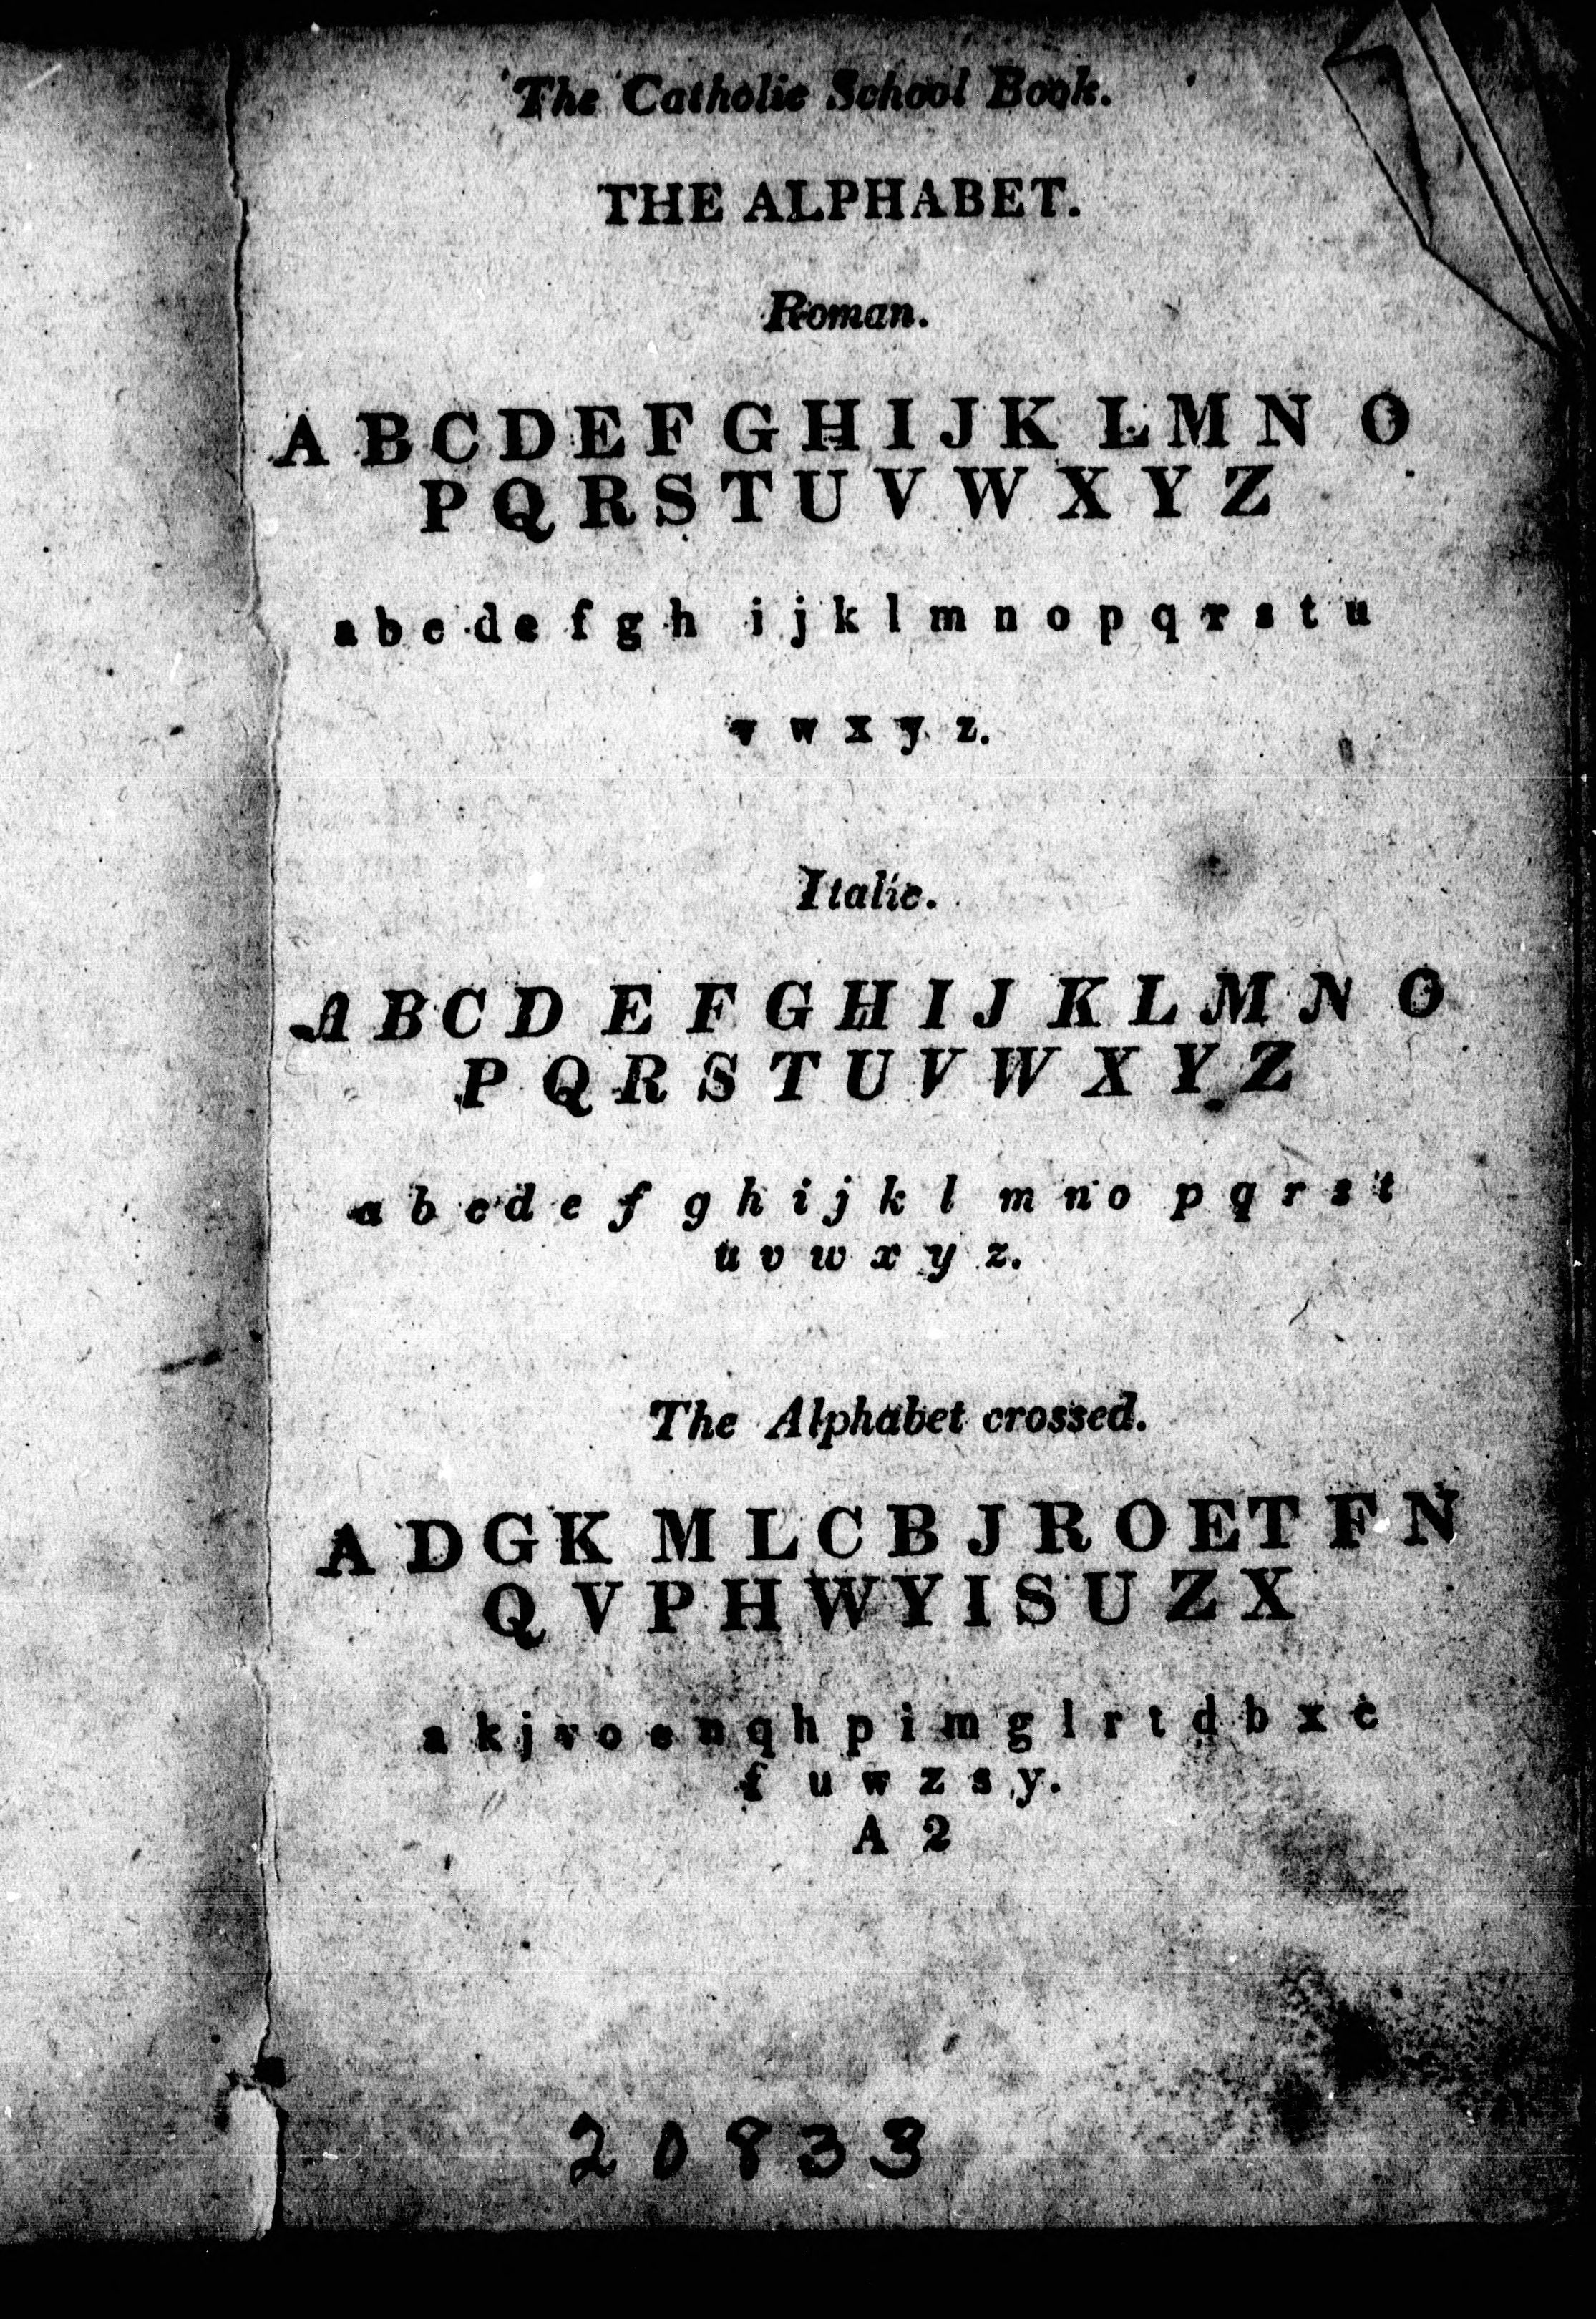 The Catholic School Book.
THE ALPHABET.
Roman.
A B C D E F G H I J K L M N O
P Q R S T U V W X Y Z
a b c d e f g h i j k l m n o p q r s t u
v w x y z.
Italic.
A B C D E F G H I J K L M N O
P Q R S T U V W X Y Z
a b c d e f g h i j k l m n o p q r s t
u v w x y z.
The Alphabet crossed.
A D G K M L C B J R O E T F N
Q V P H W Y I S U Z X
a k j v o e n q h p i m g l r t d b x c
f u w z s y.
A 2
20833